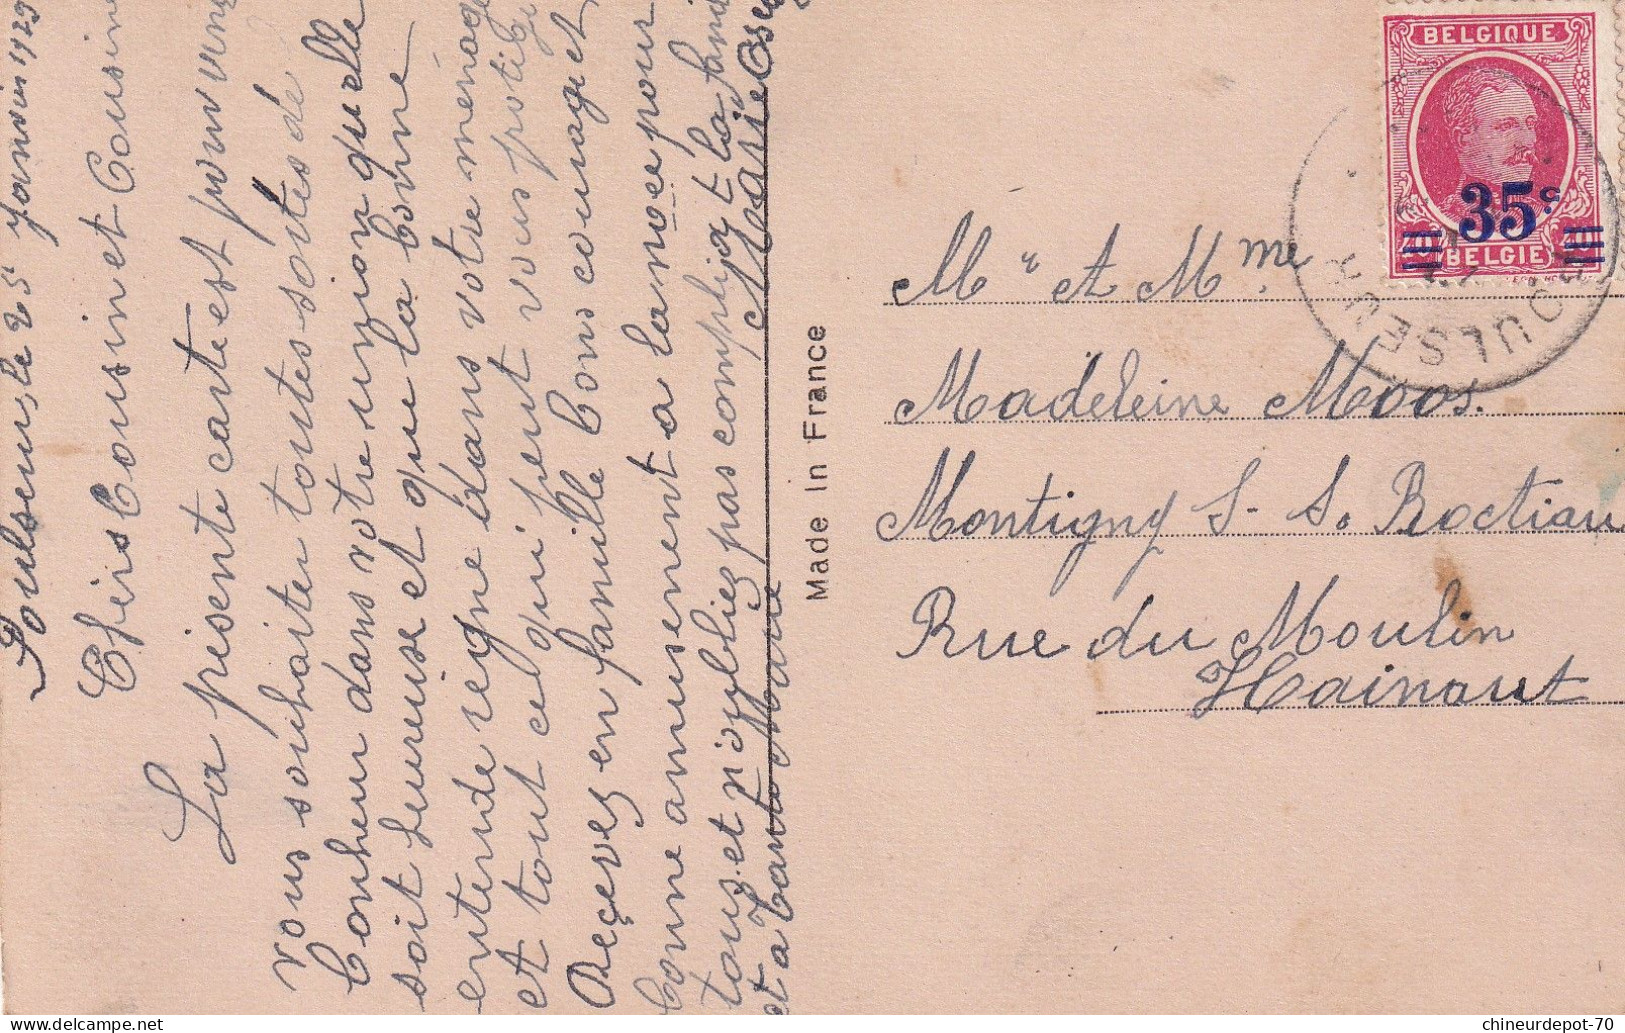 Soulseur, le 25 Janvier 1929
Chers Cousin et Cousine
La présente carte est pour
vous souhaiter toutes sortes de
bonheur dans votre union quelle
soit heureuse et que la bonne
entende règne dans votre ménage
et tout ce qui peut vous
Reçevez en famille bons courage et
bonne amusement a la noce pour
tous et n'oubliez pas complijat la
et a tante Marie
Made In France
BELGIQUE
35c
40 40
BELGIE
SOULSEUR
Mr et Mme
Madeleine Moos.
Montigny S. S. Roctiau
Rue du Moulin
Hainaut
chineurdepot-70